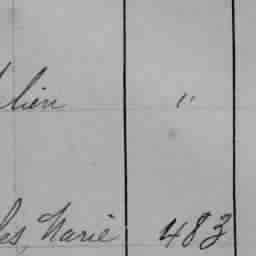 lien "
les Marie 483